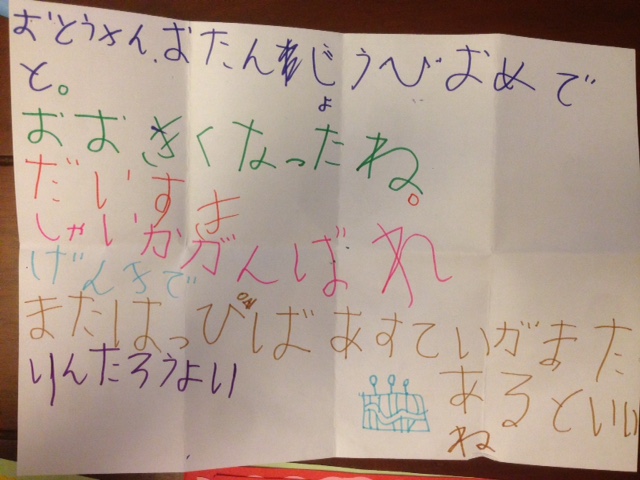 おとうさん、おたんじょうびおめで
と。
おおきくなったね。
だいすき
しゃいかがんばれ
げんきで
またはっぴばあすていがまた
あるといい
ね
りんたろうより